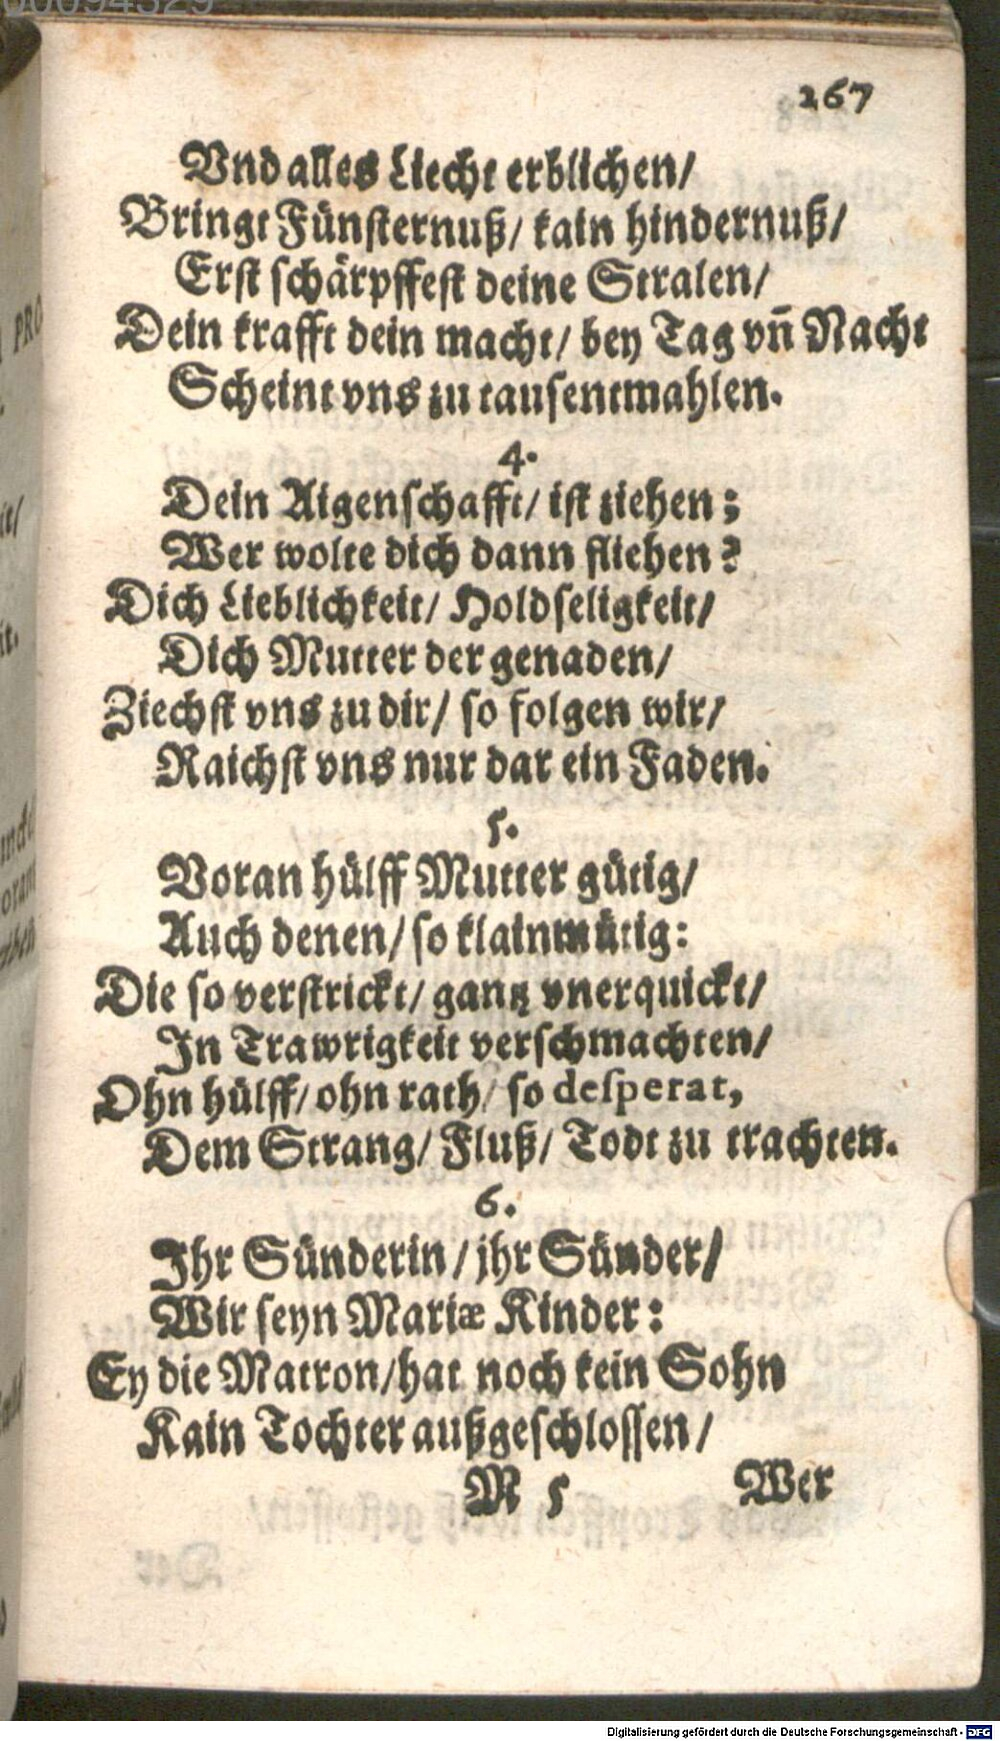 267
Vnd alles Liecht erblichen/
Bringt Fünsternuß/ kain hindernuß/
Erst schärpffest deine Stralen/
Dein krafft dein macht/ bey Tag vñ Nacht
Scheint vns zu tausentmahlen.
4.
Dein Aigenschafft/ ist ziehen;
Wer wolte dich dann fliehen?
Dich Lieblichkeit/ Holdseligkeit/
Dich Mutter der genaden/
Ziechst vns zu dir/ so folgen wir/
Raichst vns nur dar ein Faden.
5.
Voran hülff Mutter gütig/
Auch denen/ so klainmütig:
Die so verstrickt/ gantz vnerquickt/
In Trawrigkeit verschmachten/
Ohn hülff/ ohn rath/ so desperat,
Dem Strang/ Fluß/ Todt zu trachten.
6.
Ihr Sünderin/ jhr Sünder/
Wir seyn Mariæ Kinder:
Ey die Matron/hat noch kein Sohn
Kain Tochter außgeschlossen/
M 5 Wer
Digitalisierung gefördert durch die Deutsche Forschungsgemeinschaft - DFG